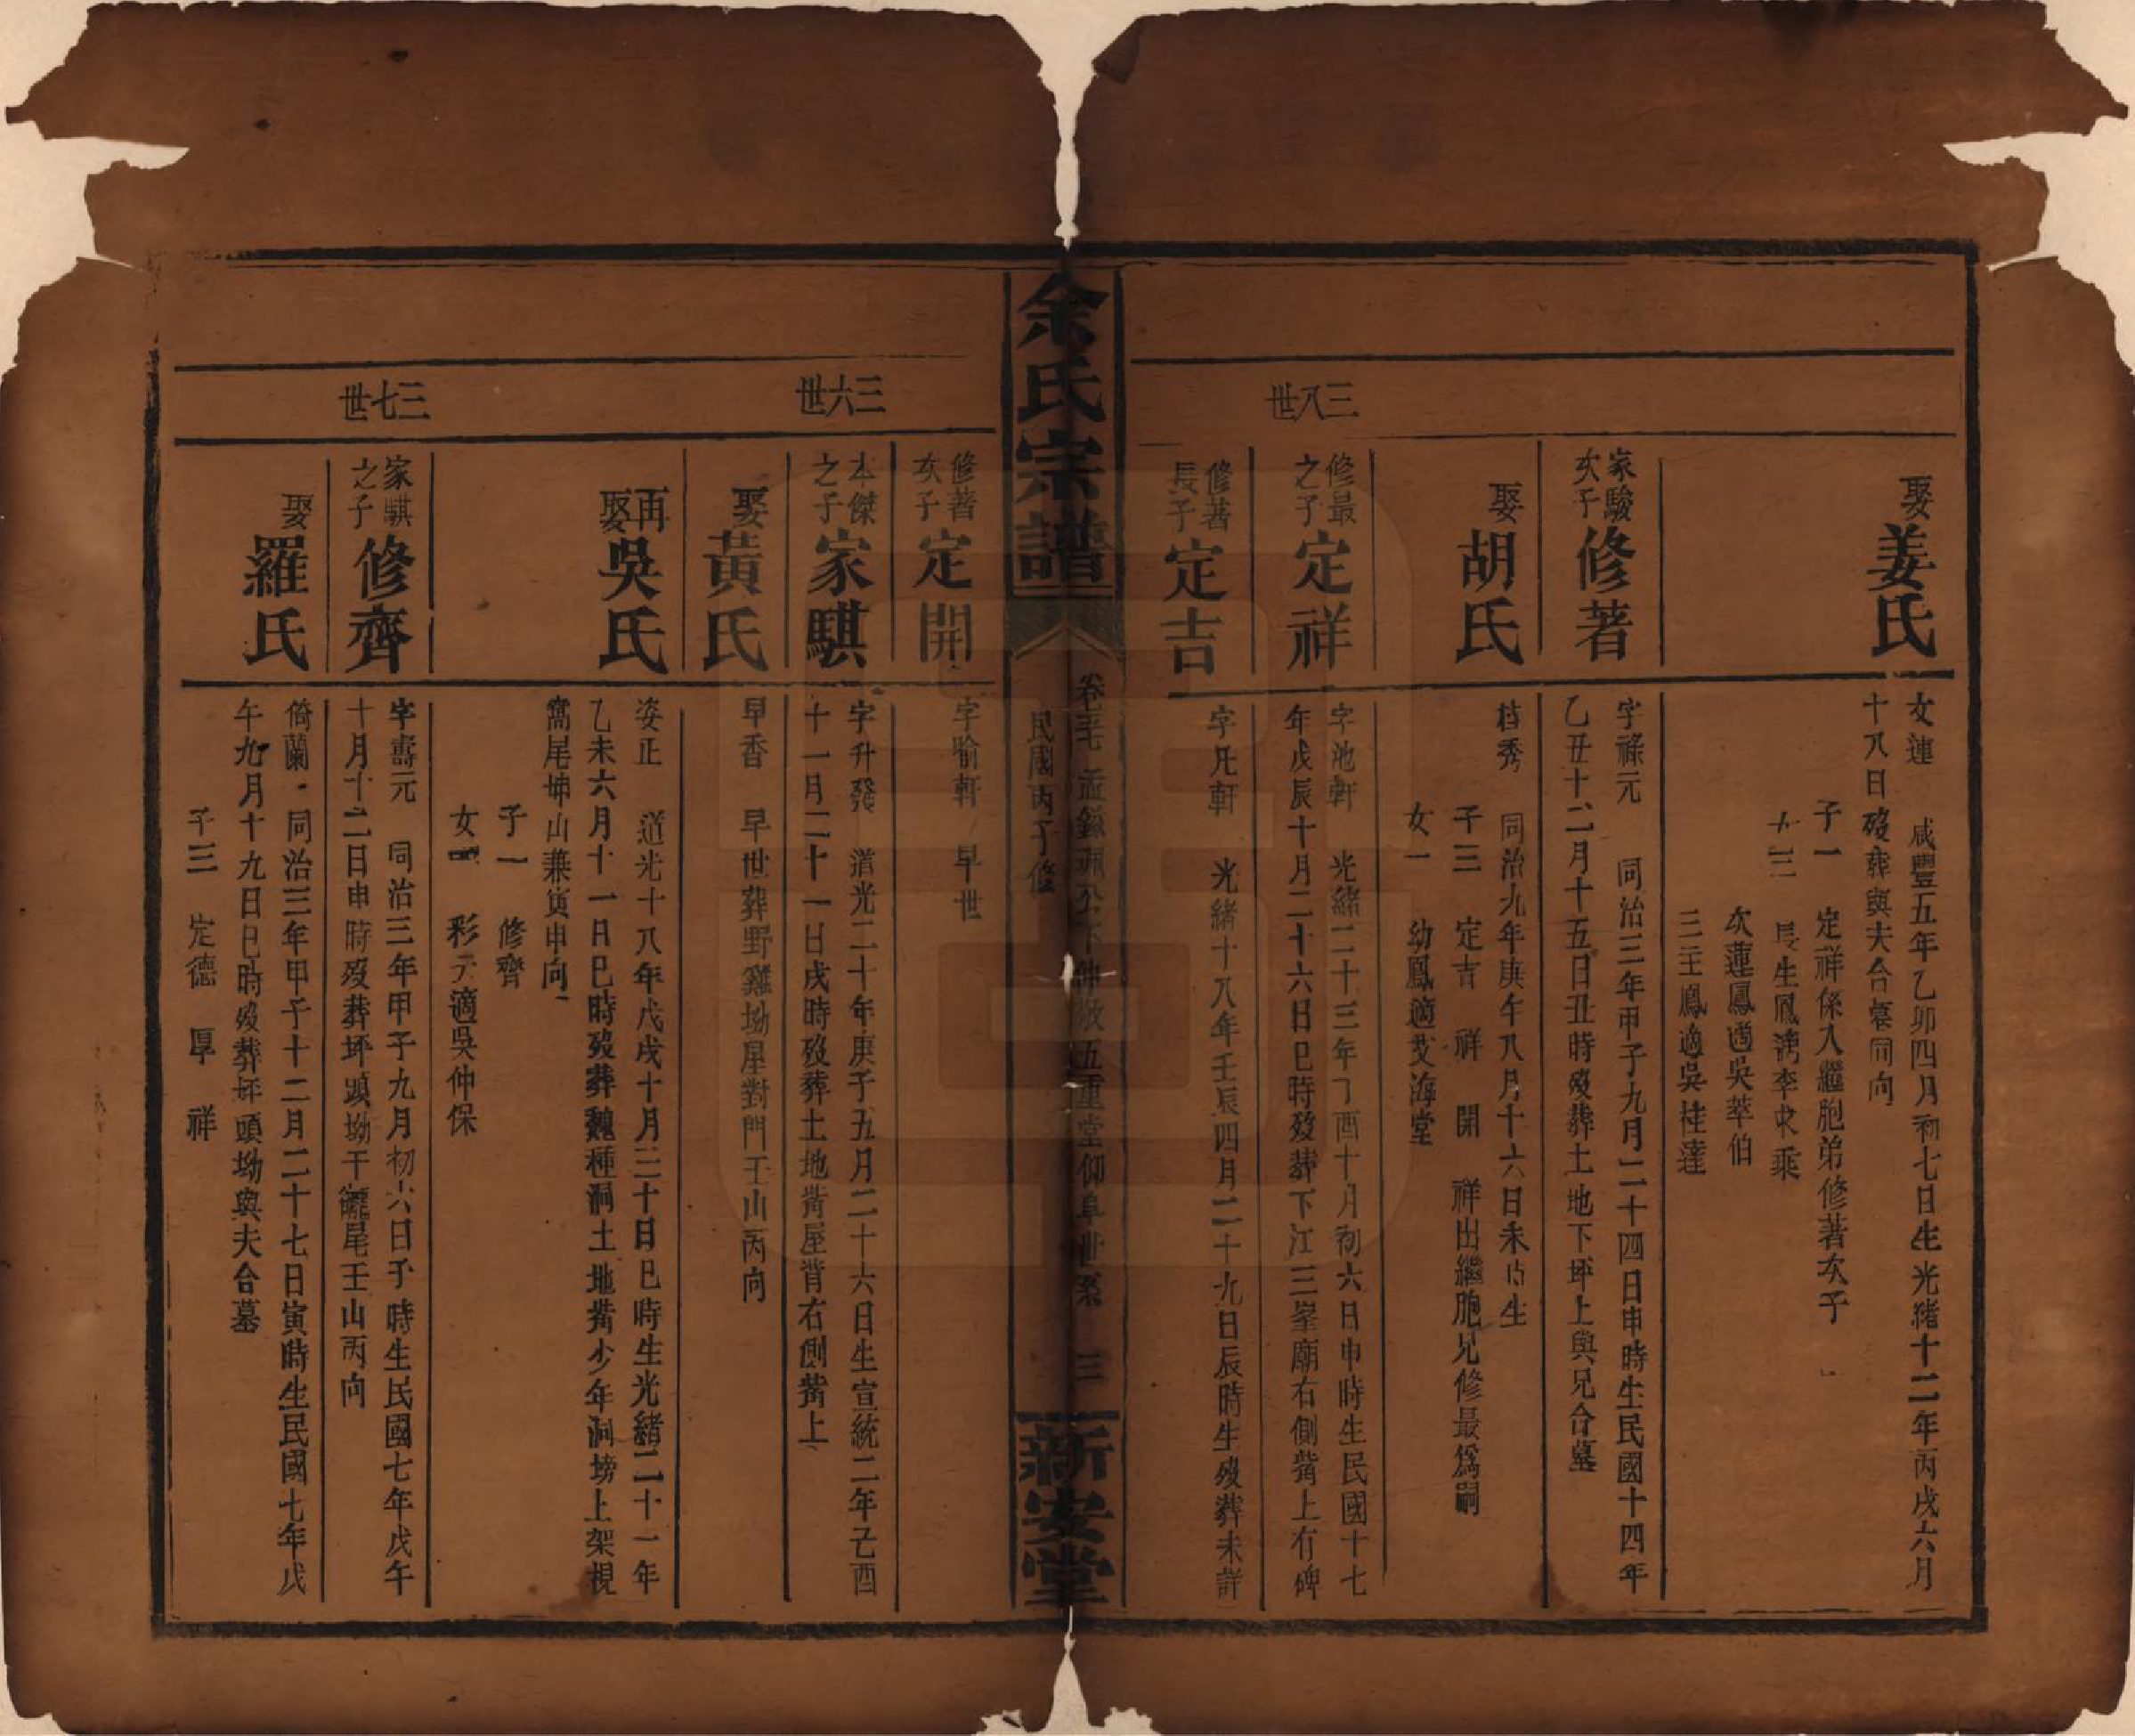 娶姜氏
女蓮 咸豐五年乙卯四月初七日生光緒十二年丙戌六月
十八日歿葬與夫合冢同向
子一 定祥係入繼胞弟修著次子
女三 長生鳳適李求乘
次蓮鳳適吳萃伯
三玉鳳適吳桂達
家駿
次子
修著
字祿元 同治三年甲子九月二十四日申時生民國十四年
乙丑十二月十五日丑時歿葬土地下坪上與兄合墓
娶胡氏
桂秀 同治九年庚午八月十六日未時生
子三 定吉 祥 開 祥出繼胞兄修最爲嗣
女一 幼鳳適艾海堂
三八世
修最
之子
定祥
字池軒 光緒二十三年丁酉十月初六日申時生民國十七
年戊辰十月二十六日巳時歿葬下江三峯廟右側嘴上有碑
修著
長子
定吉
字凡軒 光緒十八年壬辰四月二十九日辰時生歿葬未詳
余氏宗譜
卷 五重堂仰阜世系 三
民國丙子修
新安堂
修著
次子
定開
字喻軒 早世
三六世
本傑
之子
家騏
字升發 道光二十年庚子五月二十六日生宣統二年己酉
十一月二十一日戌時歿葬土地嘴屋背右側嘴上
娶黃氏
早香 早世葬野雞坳屋對門壬山丙向
再
娶
吳氏
姿正 道光十八年戊戌十月三十日巳時生光緒二十一年
乙未六月十一日巳時歿葬魏種洞土地嘴少年洞塝上架梘
窩尾坤山兼寅申向
子一 修齊
女一 彩元適吳仲保
三七世
家騏
之子
修齊
字壽元 同治三年甲子九月初六日子時生民國七年戊午
十月十二日申時歿葬坪頭坳干 尾壬山丙向
娶羅氏
倚蘭 同治三年甲子十二月二十七日寅時生民國七年戊
午九月十九日巳時歿葬坪頭坳與夫合墓
子三 定德 厚 祥